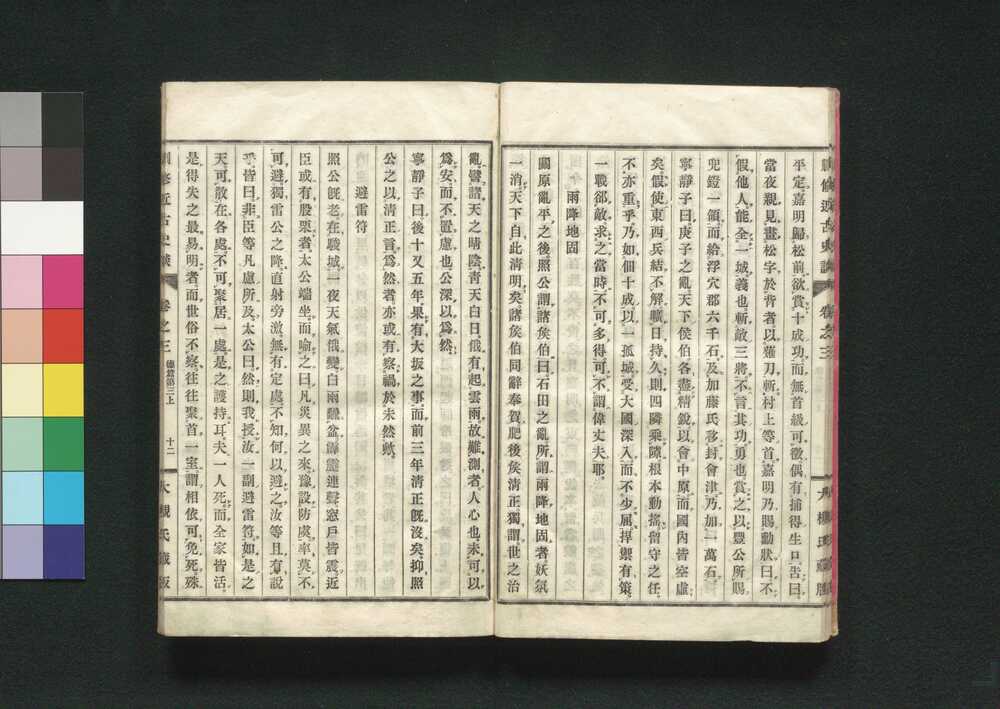 平定嘉明歸松前欲賞十成功而無首級可徵偶有捕得生口告曰
當夜親見畫松字於背者以薙刀斬村上等首嘉明乃賜勳狀曰不
假他人能全一城義也斬敵三將不言其功勇也賞之以豐公所賜
兜鎧一領而給浮穴郡六千石及加藤氏移封會津乃加一萬石
寧靜子曰庚子之亂天下侯伯各盡精銳以會中原而國內皆空虛
矣假使東西兵結不解曠日持久則四隣乘隙根本動搖留守之任
不亦重乎乃如佃十成以一孤城受大國深入而不少屈捍禦有策
一戰郤敵求之當時不可多得可不謂偉丈夫耶
雨降地固
關原亂平之後照公謂諸侯伯曰石田之亂所謂雨降地固者妖氛
一消天下自此清明矣諸侯伯同辭奉賀肥後侯清正獨謂世之治
亂譬諸天之晴陰靑天白日俄有起雲雨故難測者人心也未可以
爲安而不置慮也公深以爲然
寧靜子曰後十又五年果有大坂之事而前三年清正旣沒矣抑照
公之以清正言爲然者亦或有察禍於未然歟
避雷符
照公旣老在駿城一夜天氣俄變白雨飜盆霹靂連聲窓戶皆震近
臣或有股栗者太公端坐而喻之曰凡災異之來豫設防處率莫不
可避獨雷公之降直射旁激無有定處不知何以避之汝等且有說
乎皆曰非臣等凡慮所及太公曰然則我授汝一副避雷符如是之
天可散在各處不可聚居一處是之護持耳夫一人死而全家皆活
是得失之最易明者而世俗不察往往聚首一室謂相依可免死殊
修近古史談 卷之三 德蓋第三上 十二 大槻氏藏版